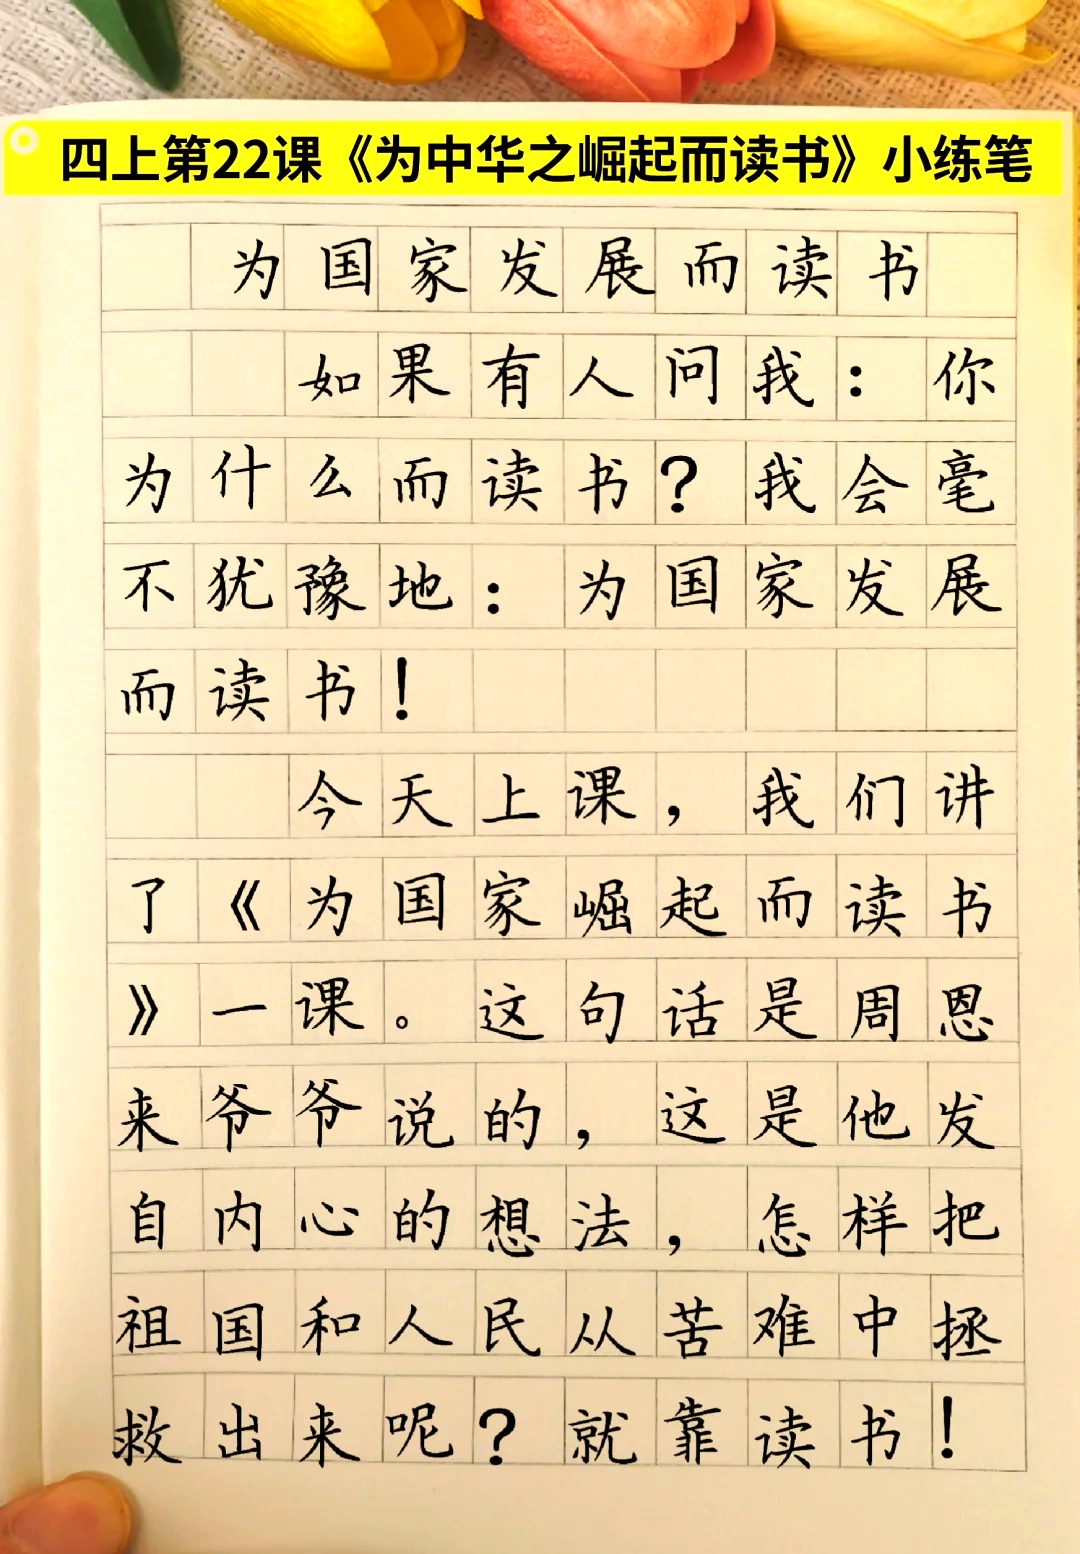 四上第22课《为中华之崛起而读书》小练笔
为国家发展而读书
如果有人问我：你
为什么而读书？我会毫
不犹豫地：为国家发展
而读书！
今天上课，我们讲
了《为国家崛起而读书
》一课。这句话是周恩
来爷爷说的，这是他发
自内心的想法，怎样把
祖国和人民从苦难中拯
救出来呢？就靠读书！